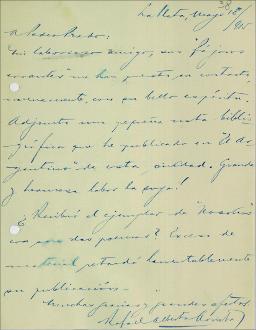 La Plata, Mayo 8/915
A Pedro Prado:
Mi laborioso amigo, sus "Pájaros
errantes" me han puesto en contacto,
nuevamente, con su bello espíritu.
Adjunto una pequeña nota biblio-
gráfica que he publicado en "El Ar-
gentino" de esta ciudad. Grande
y hermosa labor la suya!
¿Recibió el ejemplar de "Nosotros"
con sus dos poemas? Exceso de
material retardó lamentablemente
su publicación.
Muchas gracias y grandes afectos
Rafael Alberto Arrieta